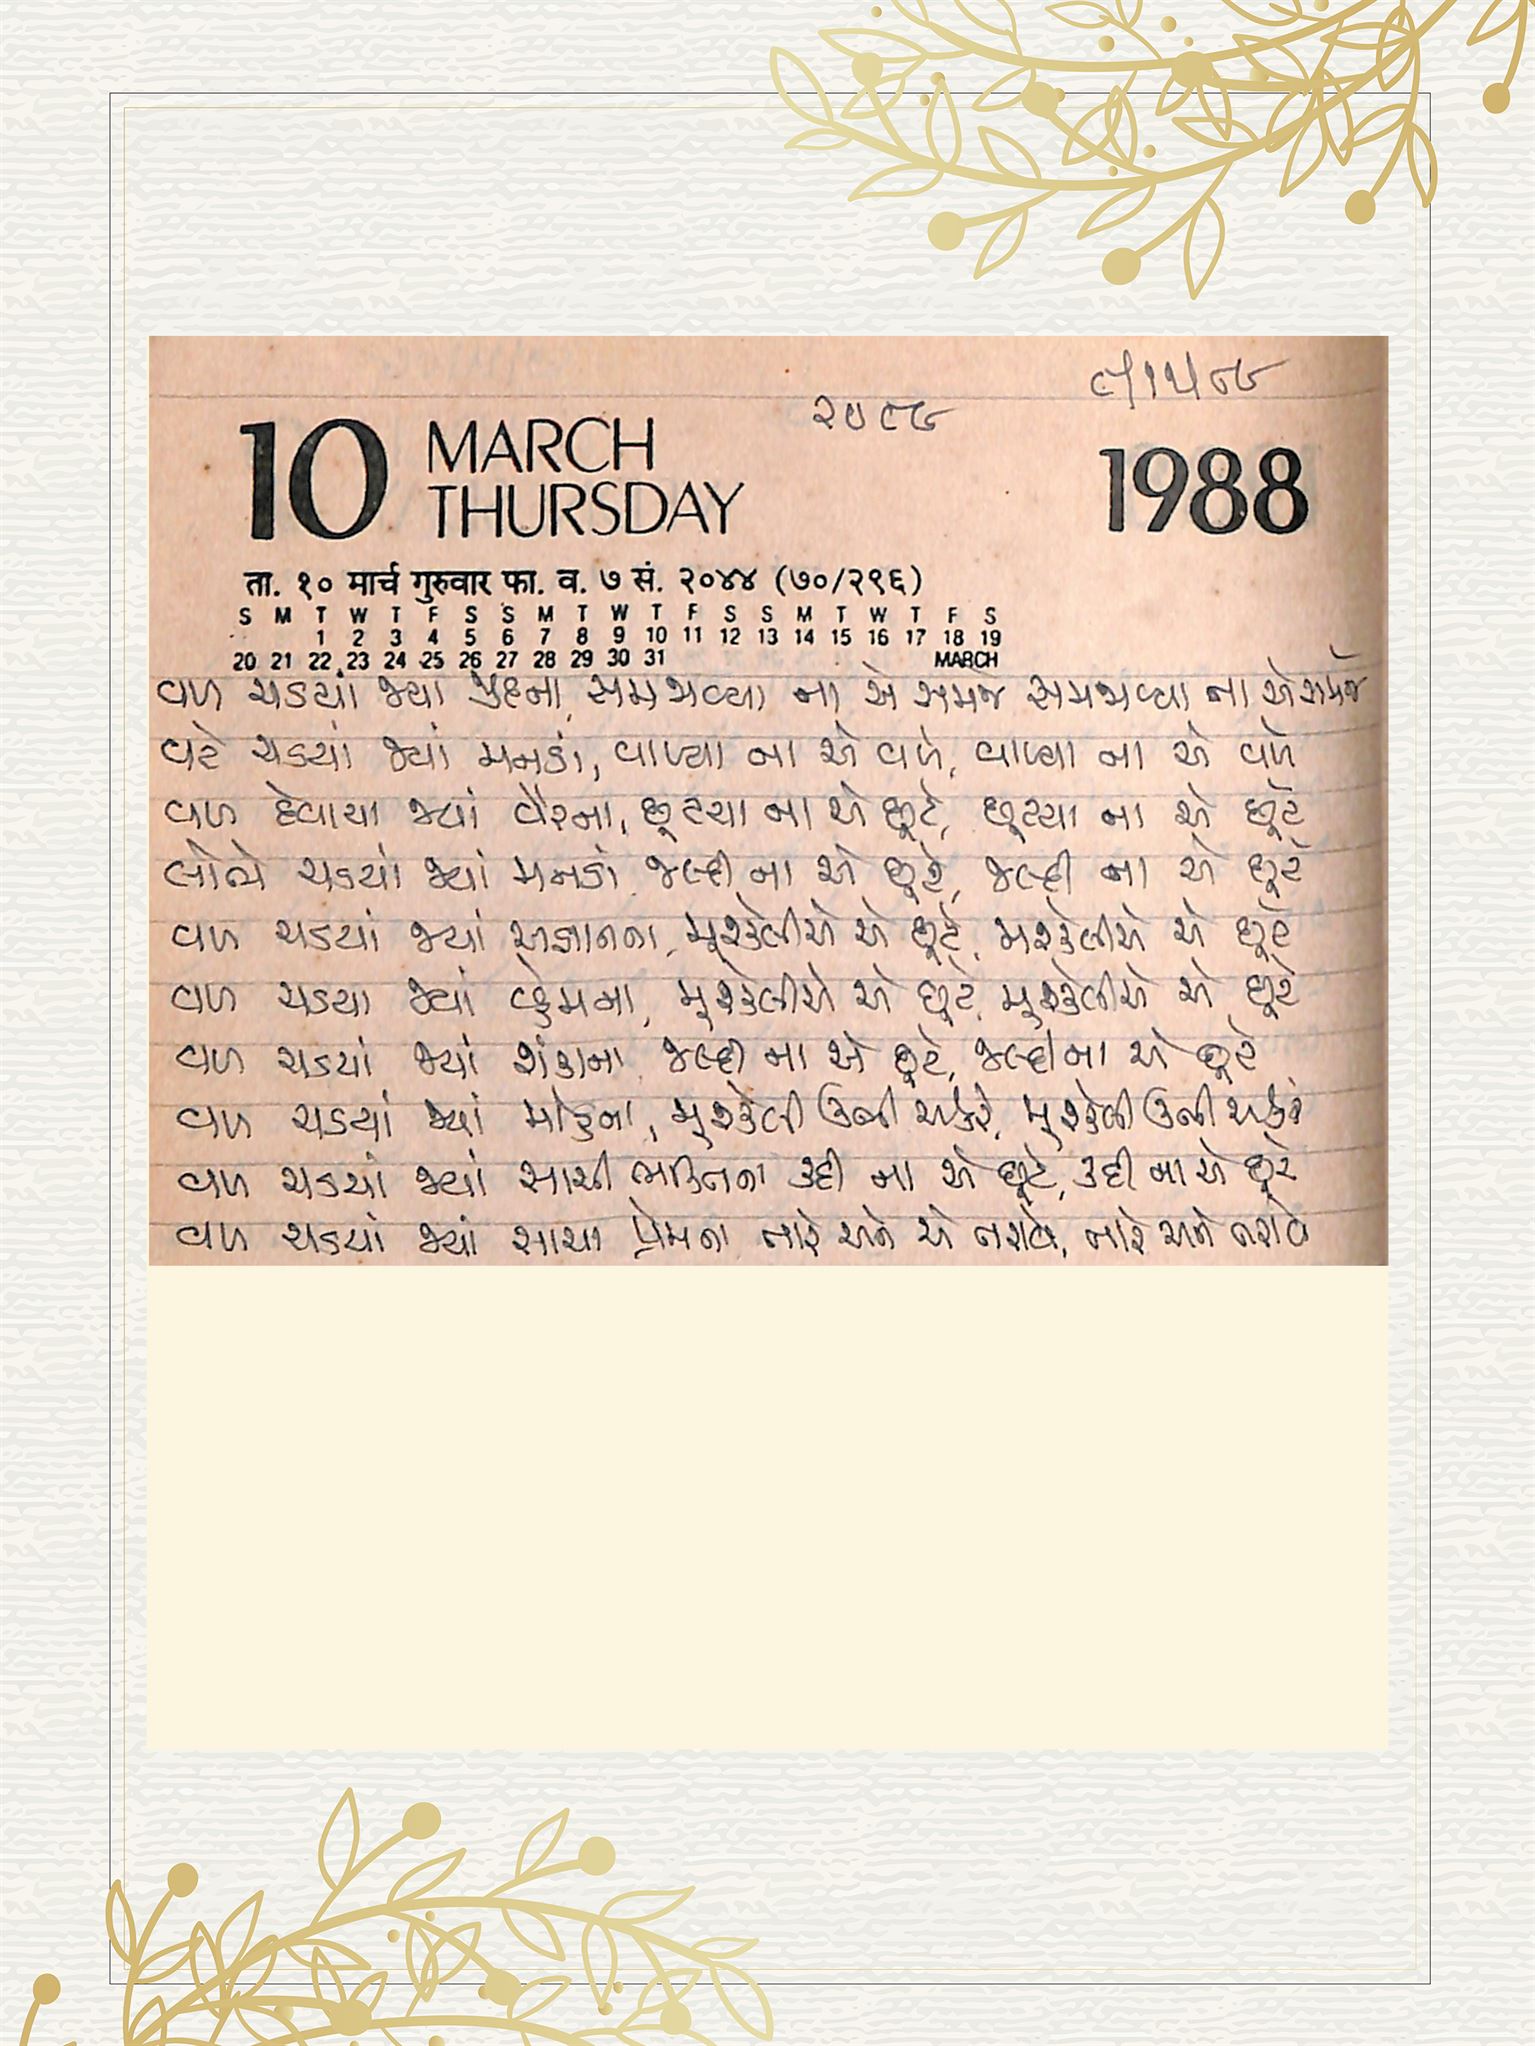 ૯/૧૫/૮૮
૨૦૯૮
10 MARCH 1988
THURSDAY
ता. १० मार्च गुरुवार फा. व. ७ सं. २०४४ (७०/२९६)
S M T W T F S S M T W T F S S M T W T F S
1 2 3 4 5 6 7 8 9 10 11 12 13 14 15 16 17 18 19
20 21 22 23 24 25 26 27 28 29 30 31 MARCH
વળ ચડયાં જ્યા સમજાવ્યા ના એ સમજે સમજાવ્યા ના એ સમજે
વટે ચડયાં જ્યાં મનડાં, વાળ્યા ના એ વળે, વાળ્યા ના એ વળે
વળ દેવાયા જ્યાં વૈરના, છૂટયા ના એ છૂટે, છૂટયા ના એ છૂટે
લોભે ચડયાં જ્યાં મનડાં જલ્દી ના એ છૂટે, જલ્દી ના એ છૂટે
વળ ચડયાં જ્યાં અજ્ઞાનના, મૂશ્કેલીએ એ છૂટે, મશ્કેલીએ એ છૂટે
વળ ચડયા જ્યાં વ્હેમના, મૂશ્કેલીએ એ છૂટે, મૂશ્કેલીએ એ છૂટે
વળ ચડયાં જ્યાં શંકાના જલ્દી ના એ છૂટે, જલ્દી ના એ છૂટે
વળ ચડયાં જ્યાં મોહના, મૂશ્કેલી ઉભી એ કરે, મૂશ્કેલી ઉભી એ કરે
વળ ચડયાં જ્યાં સાચી ભક્તિના કદી ના એ છૂટે, કદી ના એ છૂટે
વળ ચડયાં જ્યાં સાચા પ્રેમના તારે અને એ તરાવે, તારે અને તરાવે